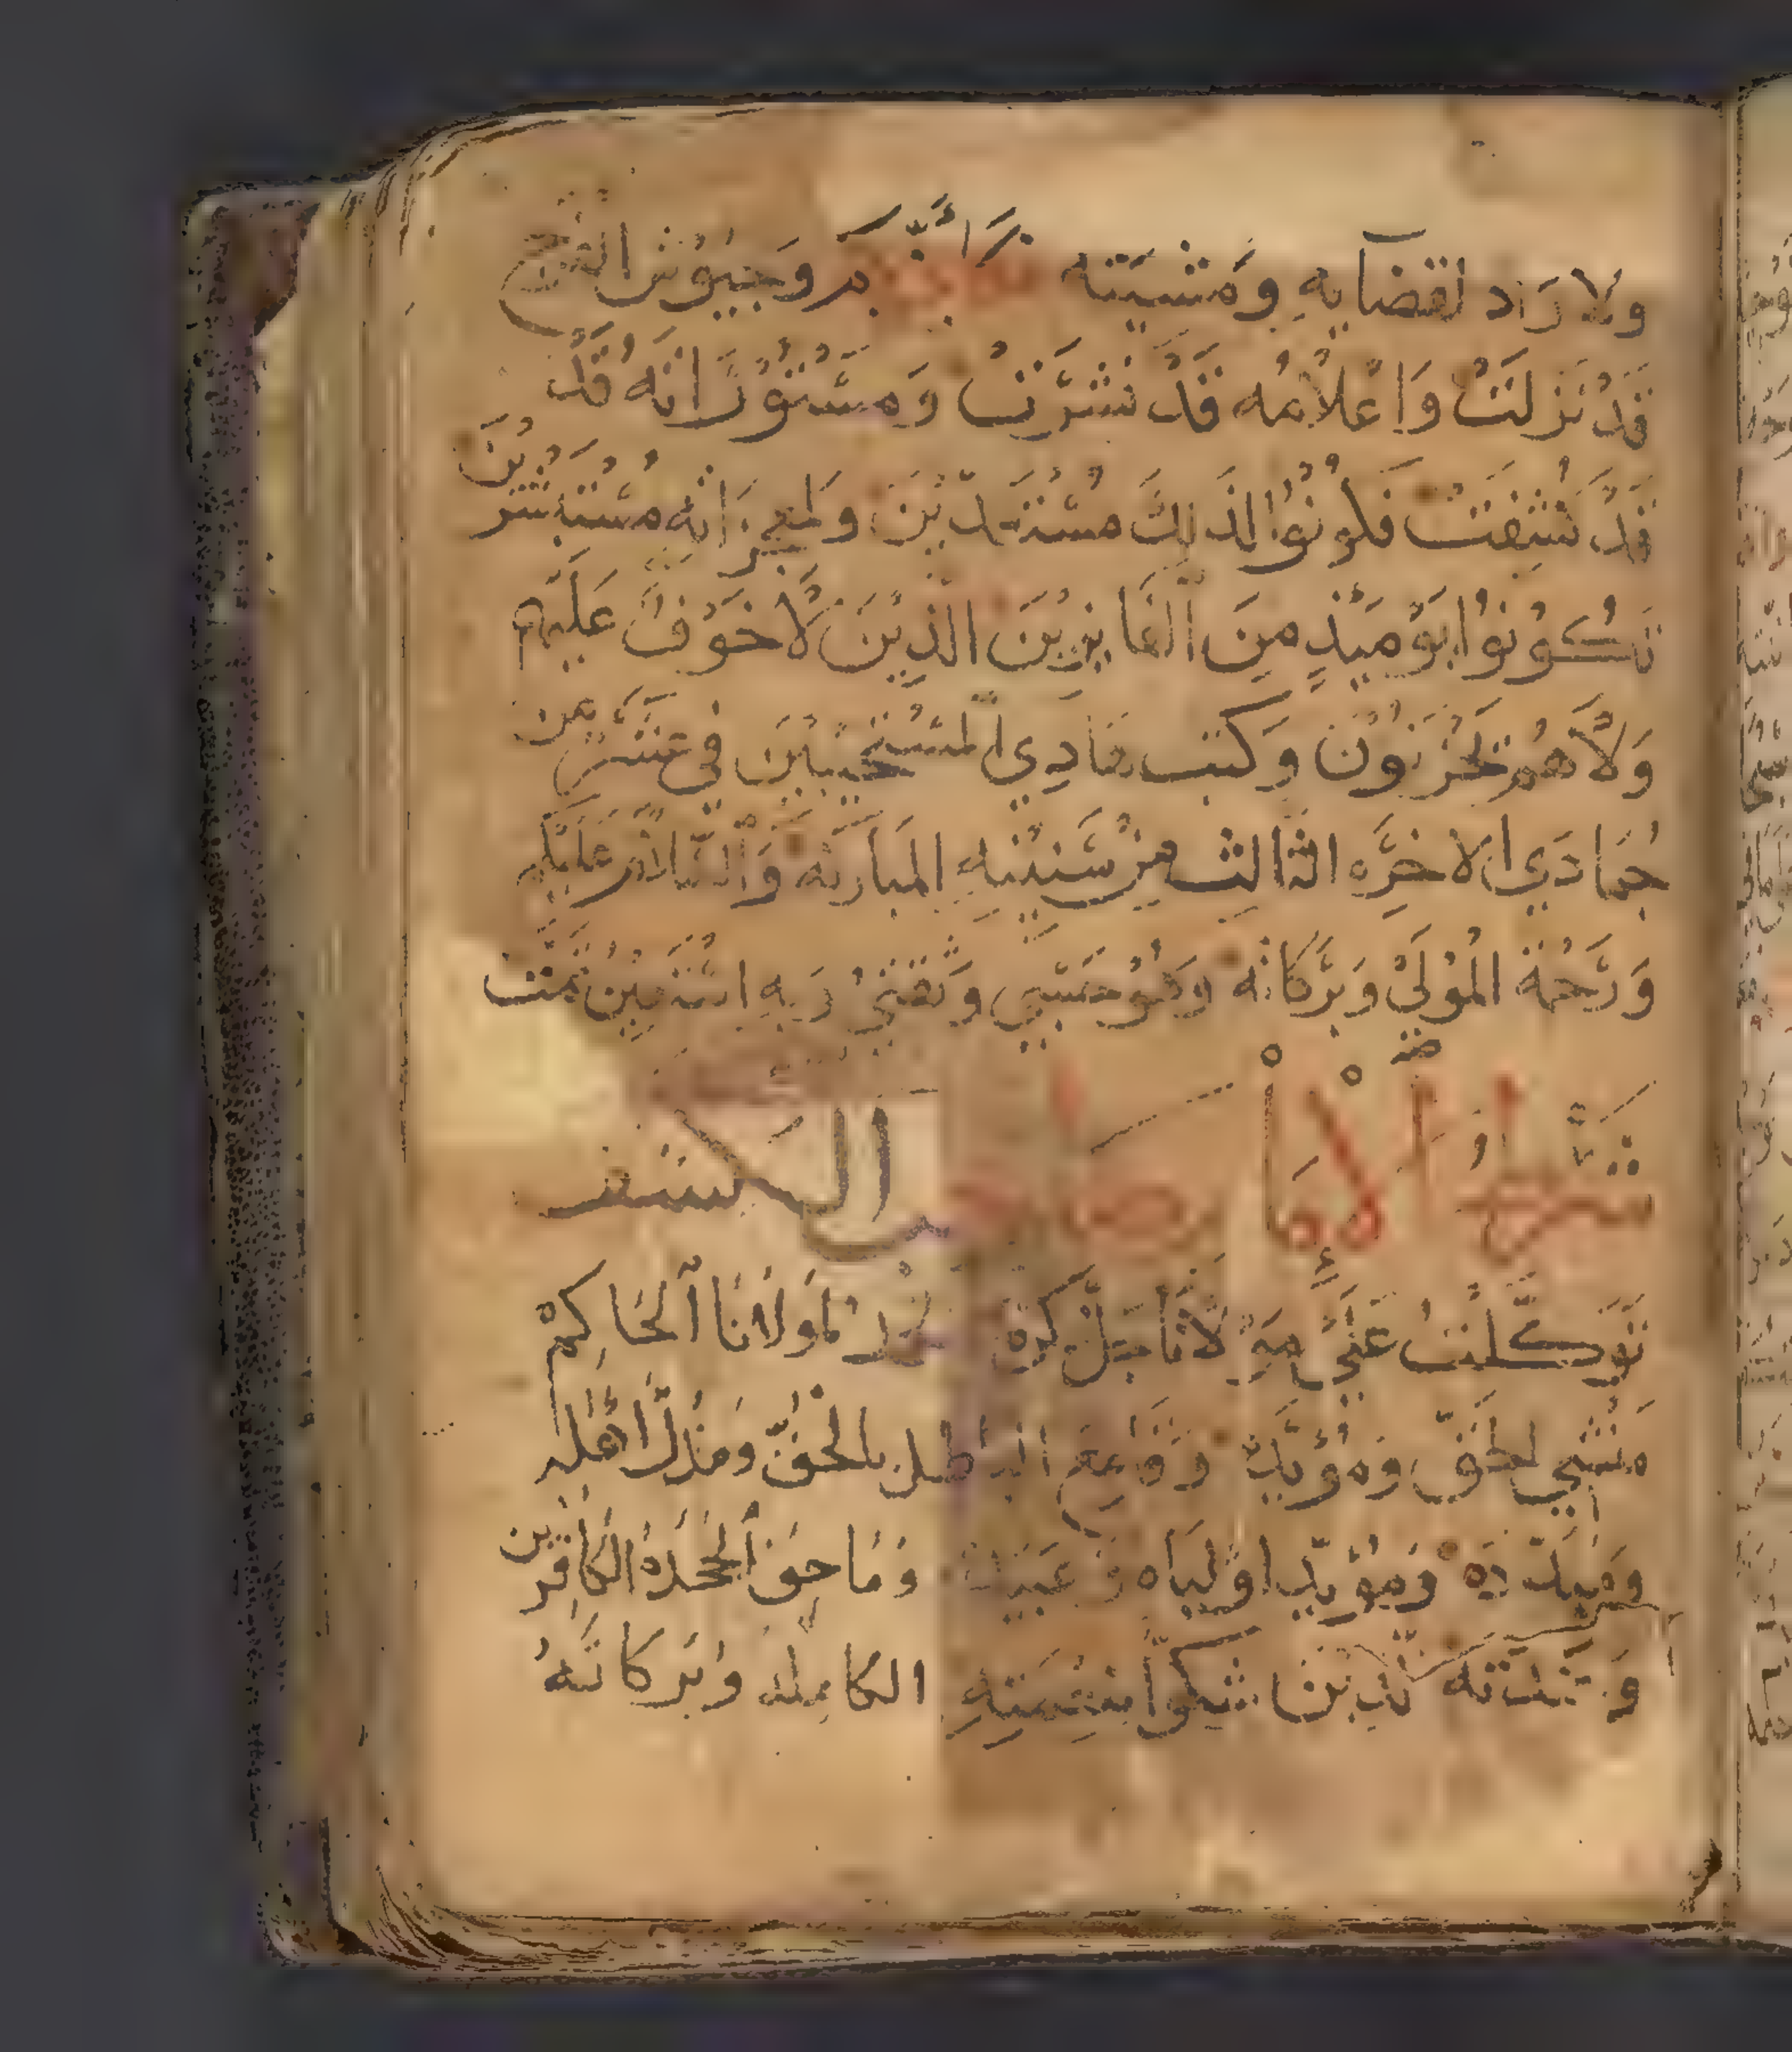 ولا راد لقضايه ومشيته وجيوش الفتح
قَدْ نَزلَتْ وَاعْلامُه قَدْ نشرَت وَمسْتوْراتُه قَدْ
قَدْ كشِفَت فكونوا لذلكَ مسْتعدّينَ ولمعجزاتِه مسْتبشرين
تكُونوْا يوْميذٍ مِنَ الفايزيْنَ الذِيْنَ لَا خَوْفٌ عَليهم
وَلَا هُم يحْزنوْن وَكتب هَادِي المسْتجيبين في عشرين من
جُمَادَي الاخرَه الثالث من سَنينهِ المبَاركه وَالسّلام عَليكم
وَرَحْمة الموْلَيْ وَبَركاته وَهُوَ حسْبي وَ وَبهِ اسْتعينُ تمت
شرط الامام صاحب الكشف
توَكلْتُ عَلي مولانا الحَاكِمْ
منْشي الحَقّ وَمُؤيّدهْ وَقامِع الباطل بالحَقّ ومُذِلّ اهله
وَمُؤيّد اوْليَاه وَعبيده وَمَاحِق الجحَدة الكافِرين
شكراً لنعْمَتهِ الكامِله وبَركاتهُ